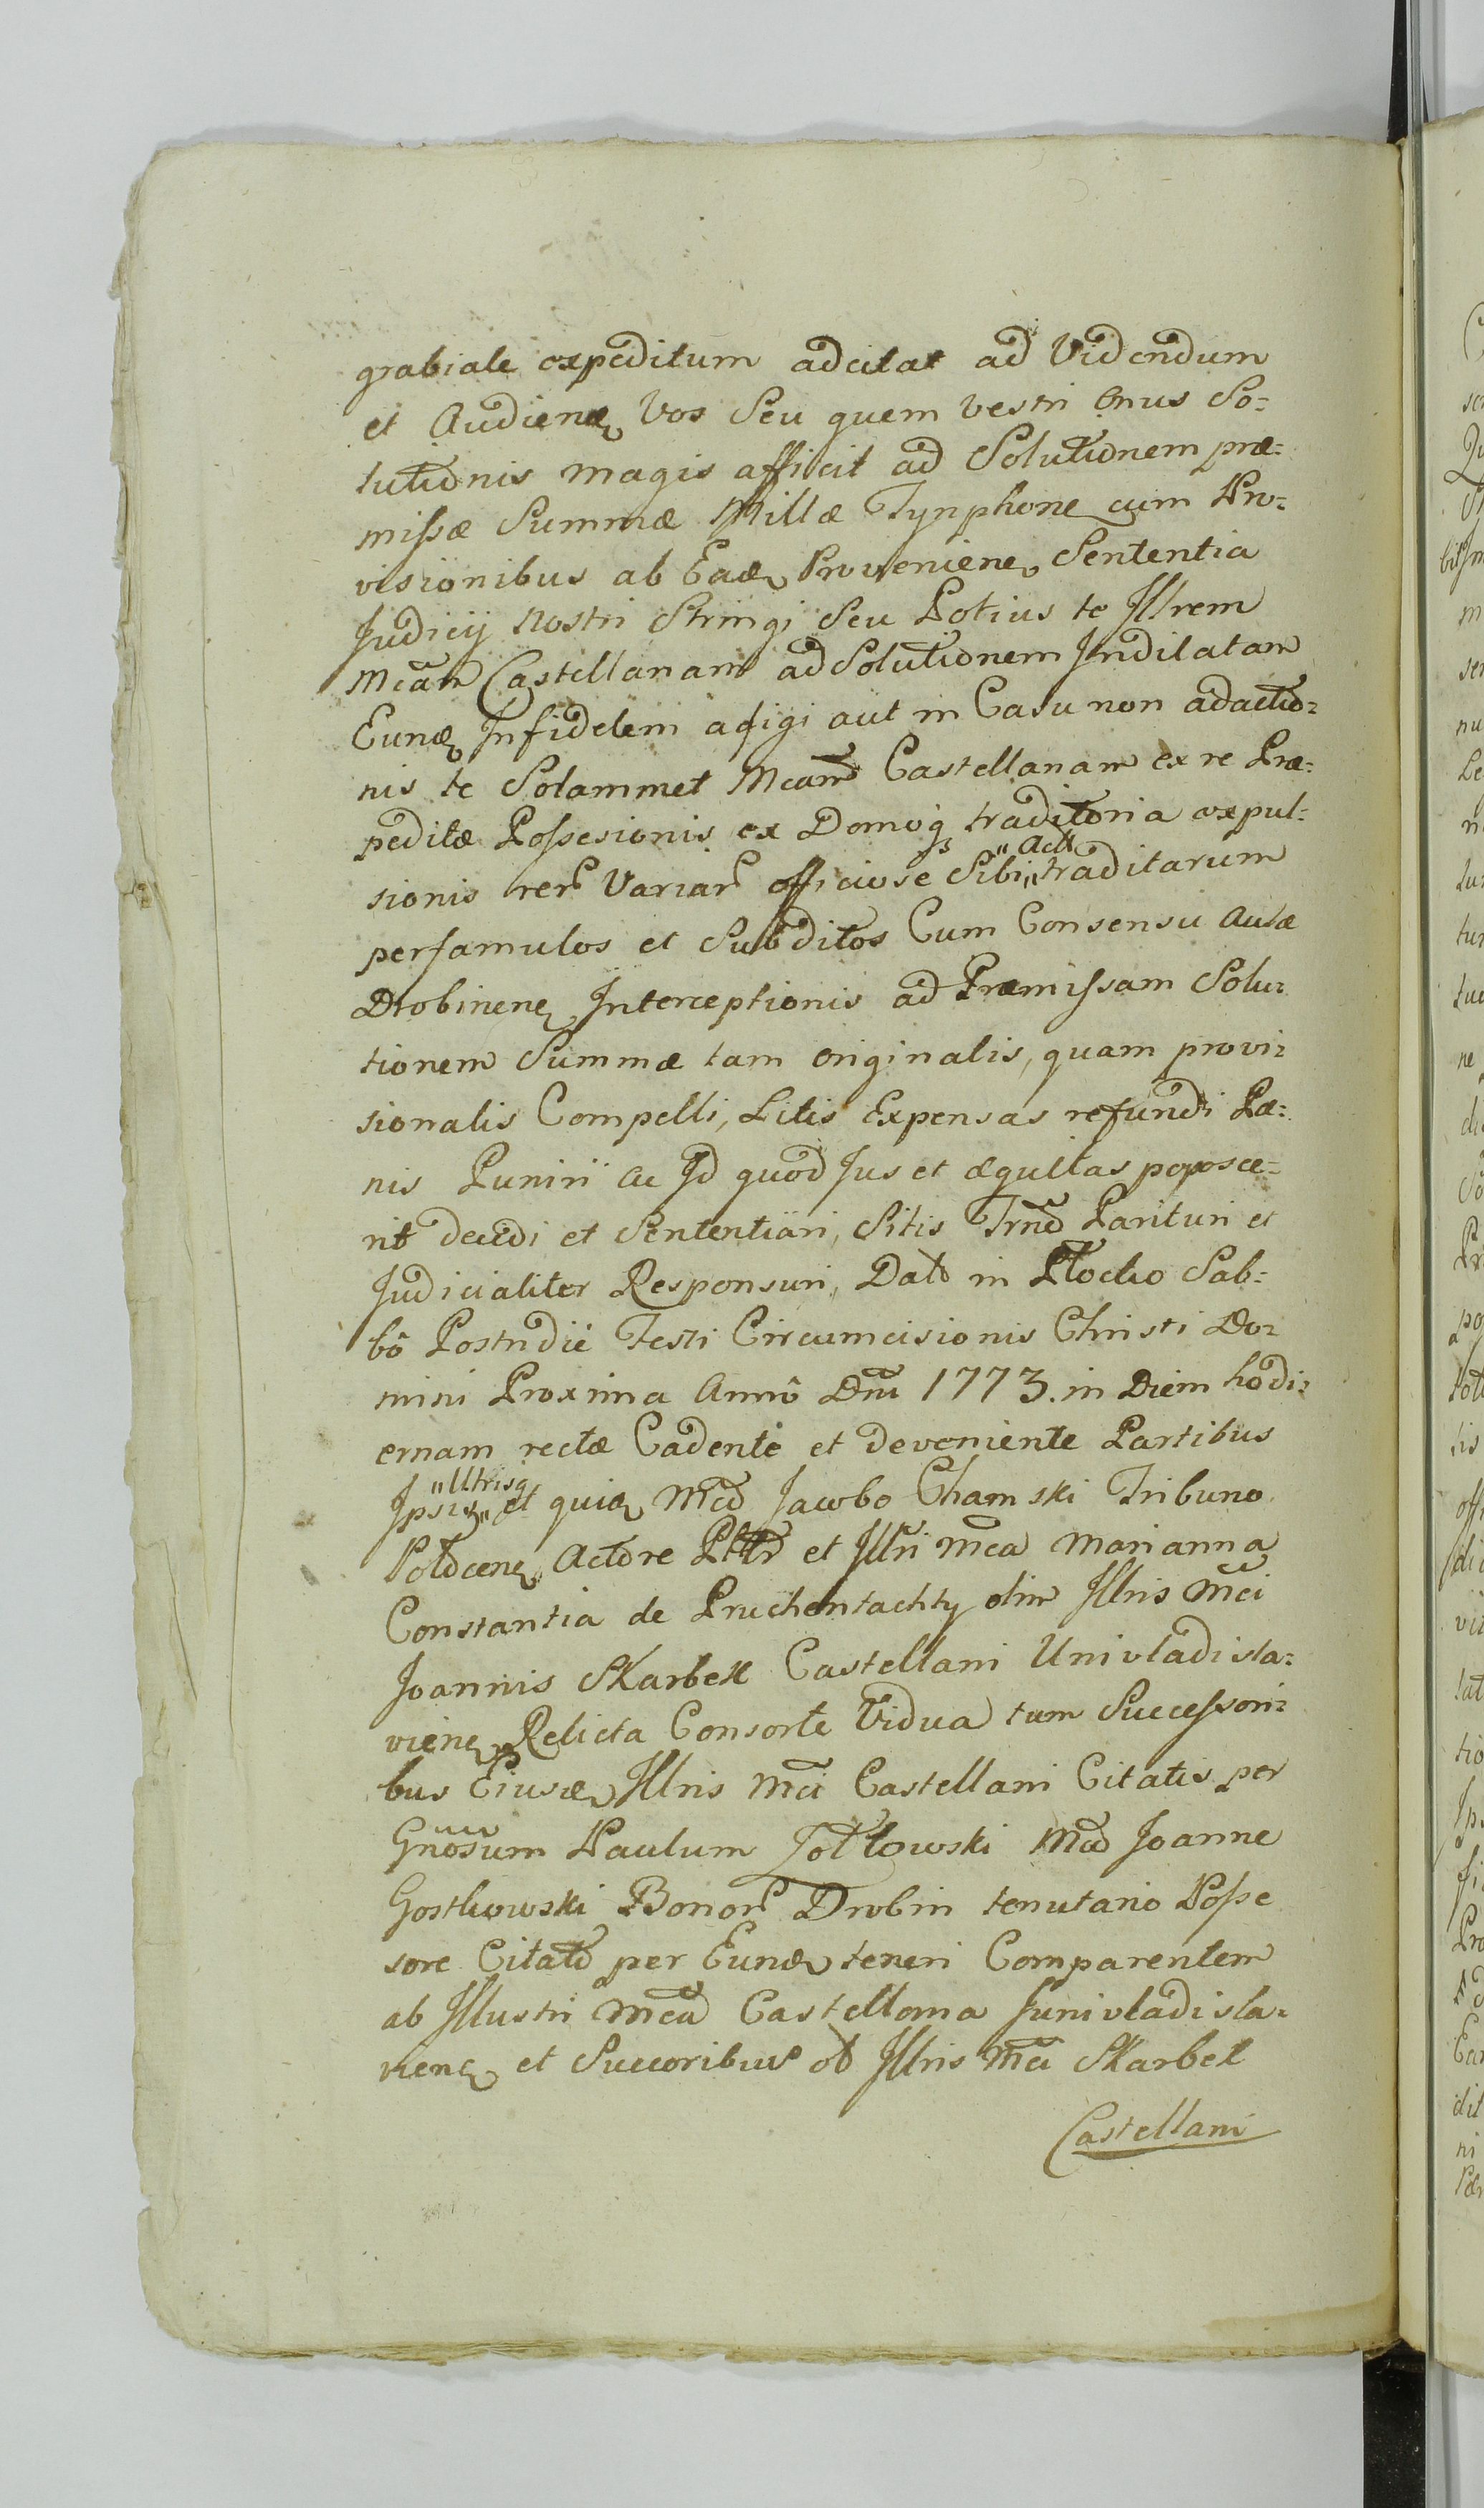 grabiale expeditum adcitat ad Videndum
et Audiend Vos Seu quem vestri Onus So=
lutionis magis afficit ad Solutionem præ=
missæ Summæ Millæ Tynphone cum Pro=
visionibus ab Ead Proveniene Sententia
Judicij Nostri Stringi Seu Potius te Illrem
Mcam Castellanam ad Solutionem Indilatam
Eund Infidelem adigi aut in Casu non adactio=
nis te Solammet Mcam Castellanam ex re Præ=
peditæ Possesionis ex Domoq traditoria expul=
sionis rer Variar officiose Sibi "Act" traditarum
per famulos et Subditos Cum Consensu Aulæ
Drobinene Interceptionis ad Præmissam Solu=
tionem Summæ tam originalis, quam provi=
sionalis Compelli, Litis Expensas refundi Pæ=
nis Puniri ac Id quod Jus et æquitas poposce=
rit decidi et Sententiari, Sitis Trnd Parituri et
Judicialiter Responsuri, Dat in Plocko Sab=
bô Postridie Festi Circumcisionis Christi Do=
mini Proxima Annô Dni 1773. in Diem hodi=
ernam rectæ Cadente et deveniente Partibus
Ipsis "Utrisq" et quid Mcô Jacobo Chamski Tribuno
Plocene Actore et Illri Mca Marianna
Constantia de olim Illris Mci
Joannis Skarbek Castellani Univladisla=
viene Relicta Consorte Vidua tum Successori=
bus Eiusd Illris Mci Castellani Citatis per
Gnosum Paulum Mcô Joanne
Gostkowski Bonor Drobin tenutario Posse
sore Citatô per Eund teneri Comparentem
ab Illustri Mca Castellana Junivladisla=
viene et Succoribus ol Illris Mci Skarbek
Castellani